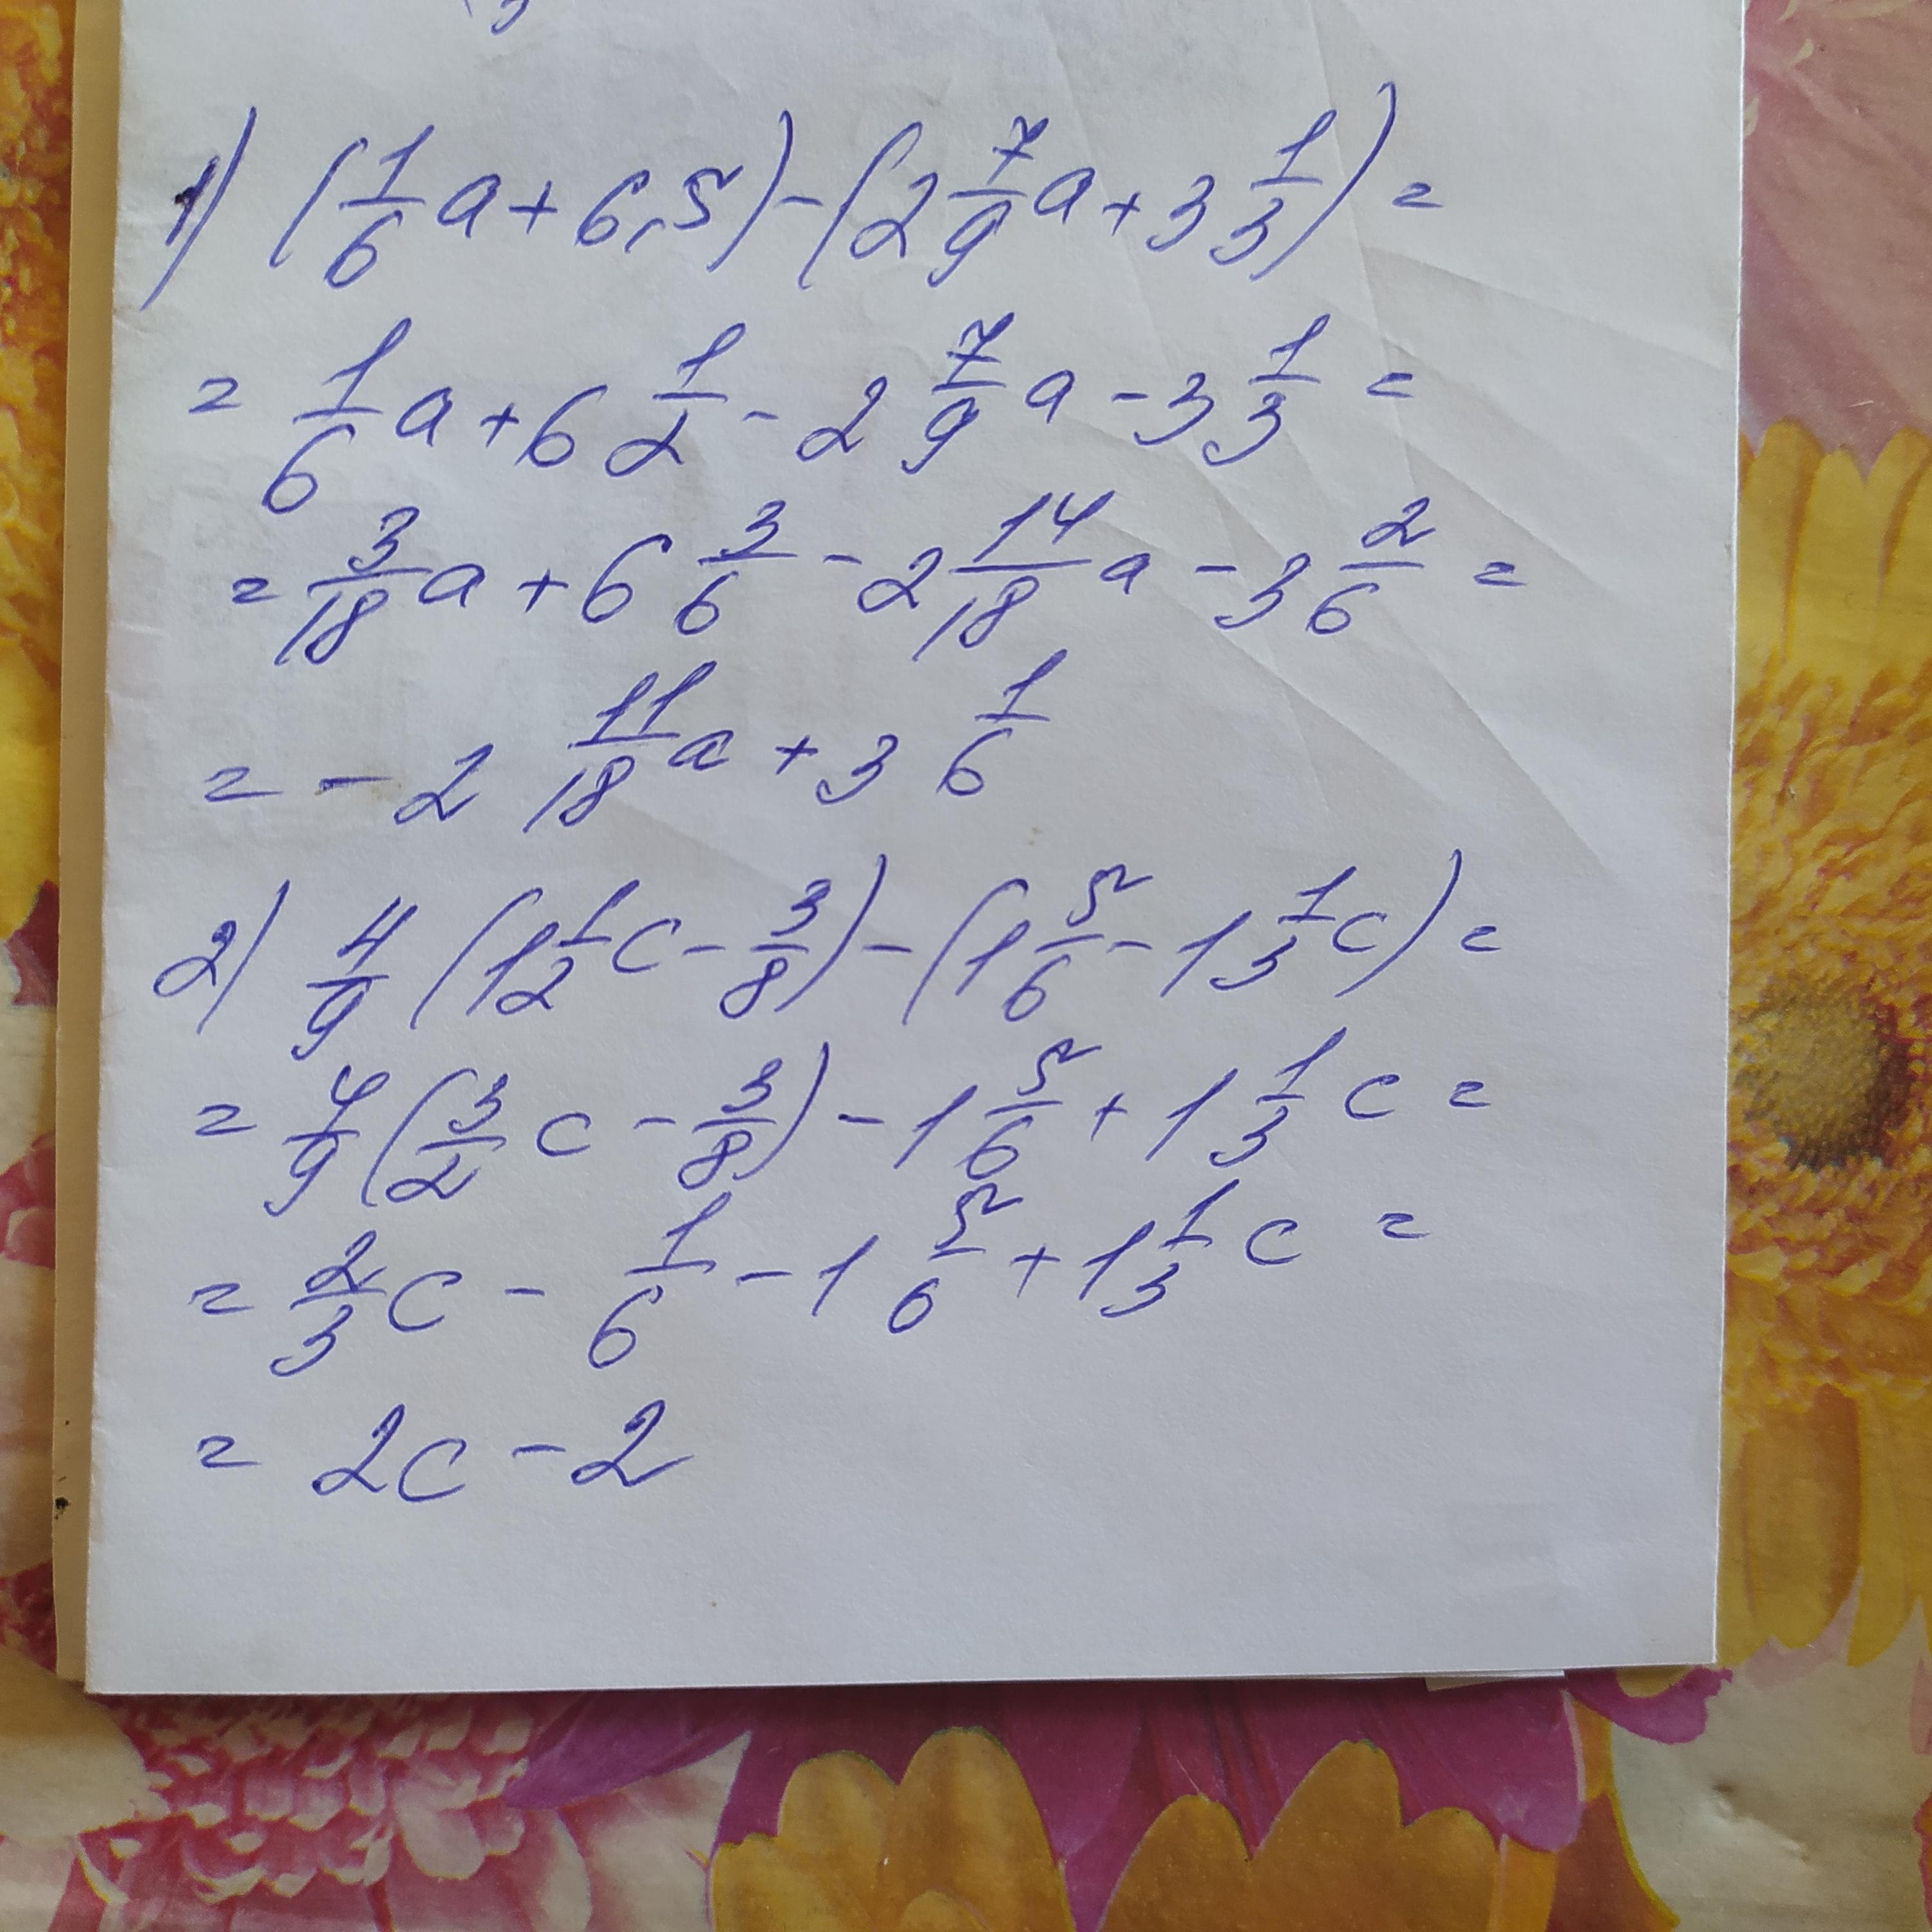 1) (1/6 a + 6,5) - (2 7/9 a + 3 1/3) =
= 1/6 a + 6 1/2 - 2 7/9 a - 3 1/3 =
= 3/18 a + 6 3/6 - 2 14/18 a - 3 2/6 =
= - 2 11/18 a + 3 1/6
2) 4/9 (1 1/2 c - 3/8) - (1 5/6 - 1 1/3 c) =
= 4/9 (3/2 c - 3/8) - 1 5/6 + 1 1/3 c =
= 2/3 c - 1/6 - 1 5/6 + 1 1/3 c =
= 2c - 2